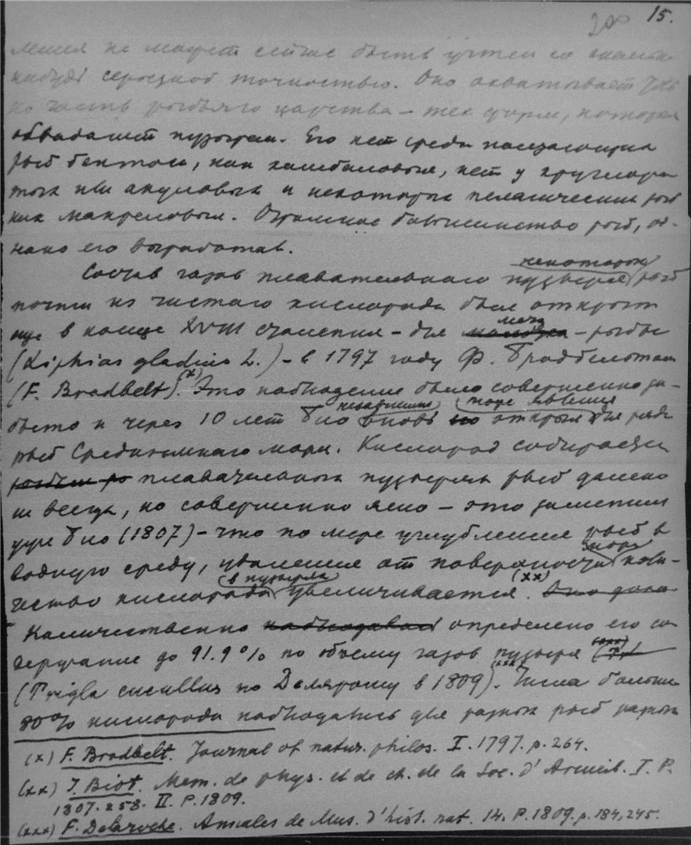 200 15.
ления не может сейчас быть учтен со сколько
нибудь серьезной точностью. Оно охватывает
но часть рыбьего царства – тех форм, которые
обладают пузырем. Его нет среди ползающих
рыб бентоса, как камбаловые, нет у круглоро
тых или акуловых и некоторых пелагических рыб
как макрелевых. Огромное большинство рыб, од-
нако его выработав.
некоторых
Состав газов плавательного пузыря рыб
почти из чистого кислорода был открыт
еще в конце XVIII столетия – для меча – рыбы
(Xiphias gladius L.) – в 1797 году Ф. Брадбельтом
(F. Bradbelt).(x) Это наблюдение было совершенно за-
независимо море явление
быто и через 10 лет Био вновь открыл для ряда
рыб Средиземного моря. Кислород собирается
плавательном пузырем рыб далеко
не всегда, но совершенно ясно – это заметил
уже Био (1807) – что по мере углубления рыб в
водную среду, удаления от поверхности моря коли-
в пузыре (xx)
чество кислорода увеличивается.
Количественно наблюдавший определено его со
держание до 91.9% по объему газов пузыря
(Trigla cucullus по Делярошу в 1809).(xxx) Числа больше
80% кислорода наблюдались для разных рыб разных
(x) F. Bradbelt. Journal of natur. philos. I. 1797. p. 264.
(xx) J. Biot. Mem. de phys. et de ch. de la Soc. d'Arcueil. I. P.
1807. 258. II. P. 1809.
(xxx) F. Delaroche. Annales de Mus. d'hist. nat. 14. P. 1809. p. 184, 245.